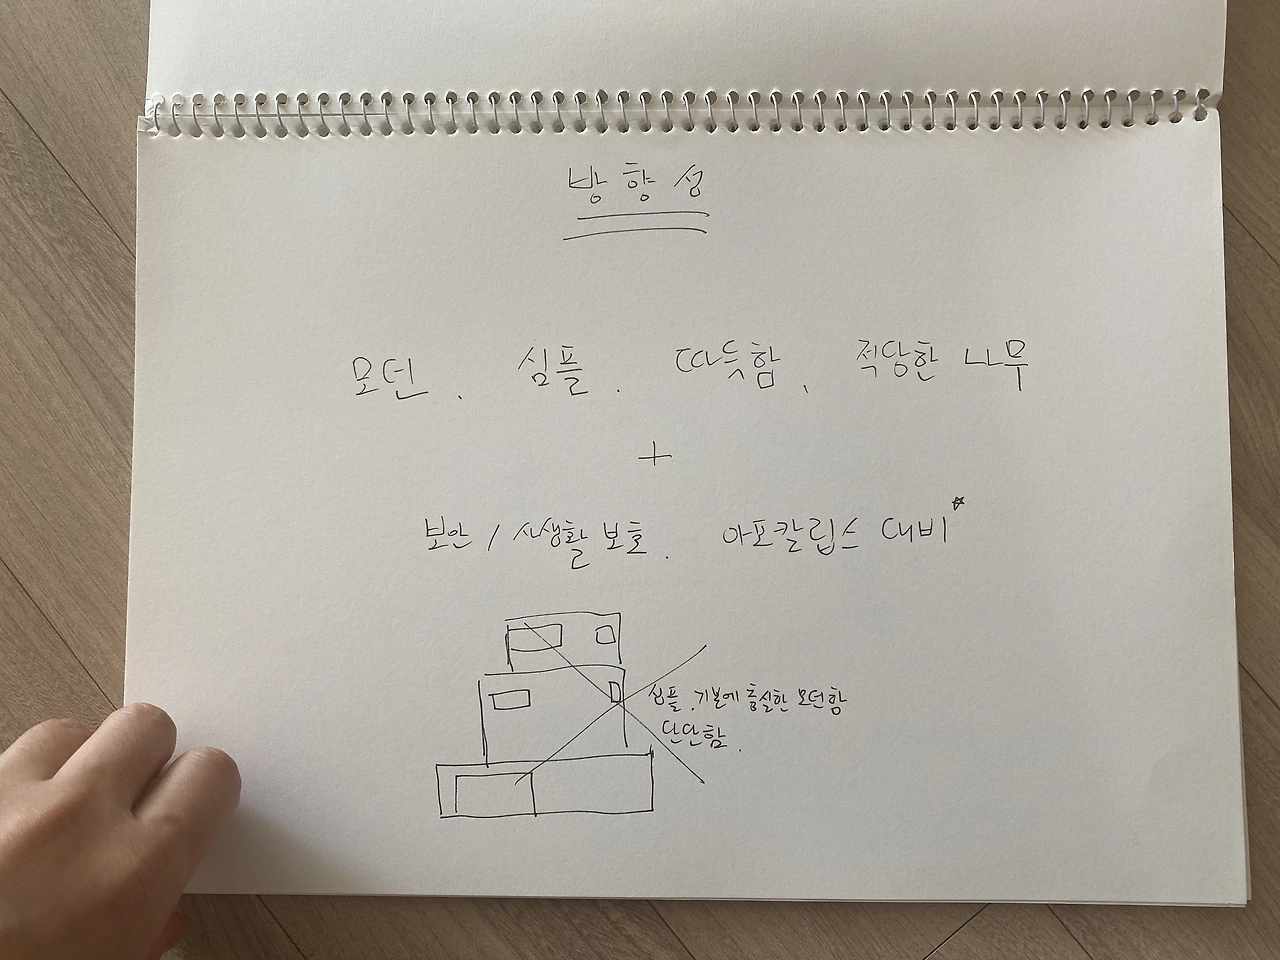 방향성
모던. 심플. 따듯함. 적당한 나무
+
보안 / 사생활 보호. 아포칼립스 대비☆
심플. 기본에 충실한 모던함
단단함.